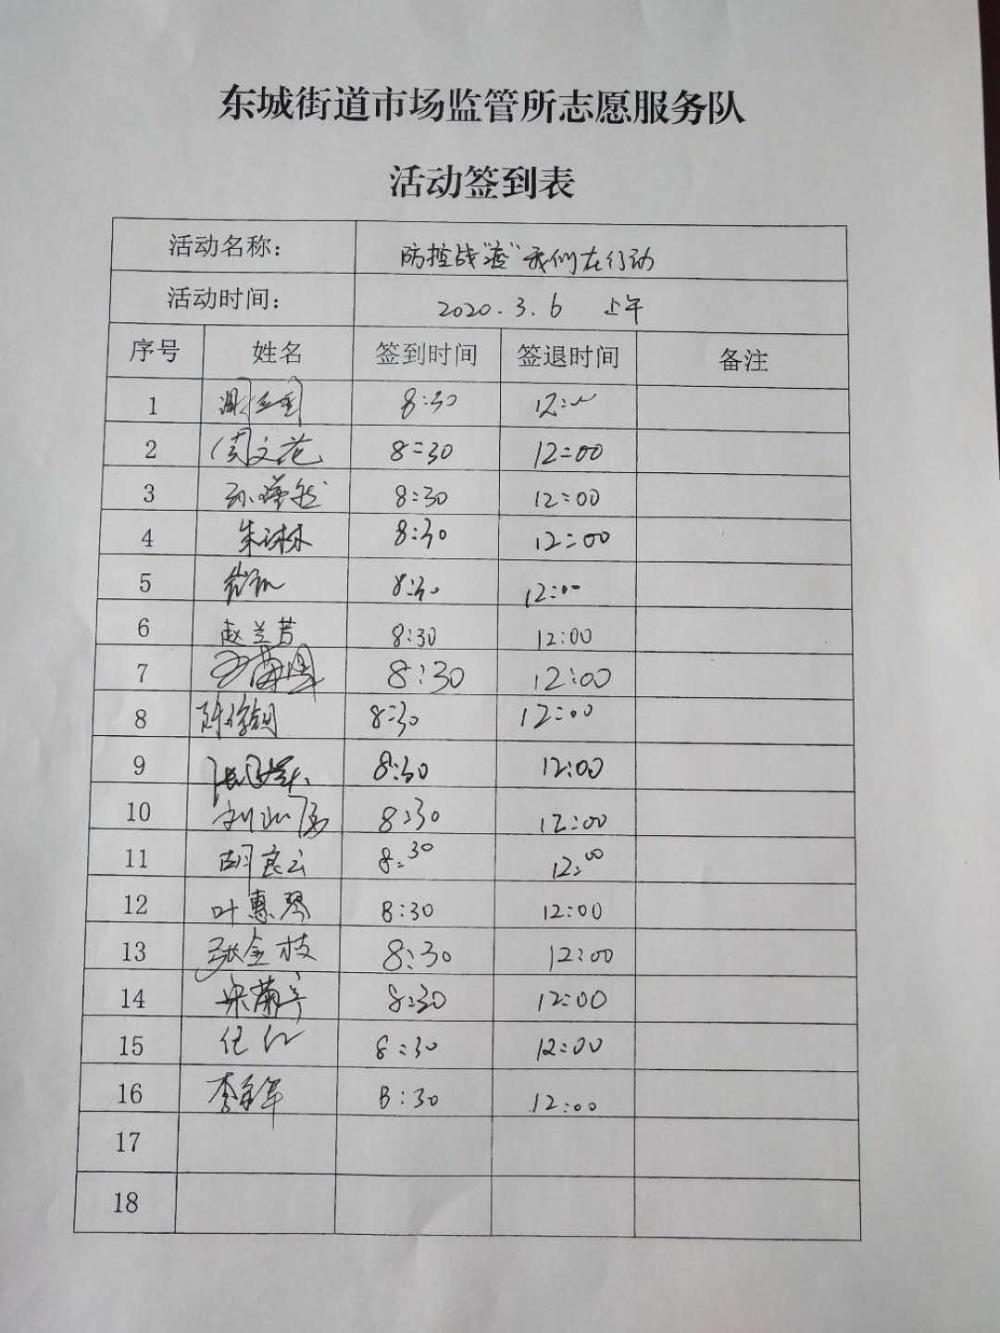 东城街道市场监管所志愿服务队
活动签到表
活动名称: 防控战“疫”我们在行动
活动时间: 2020.3.6 上午
序号 姓名 签到时间 签退时间 备注
1 8:30 12:00
2 周文范 8:30 12:00
3 8:30 12:00
4 朱琳林 8:30 12:00
5 8:30 12:00
6 赵兰芳 8:30 12:00
7 8:30 12:00
8 8:30 12:00
9 8:30 12:00
10 8:30 12:00
11 胡良云 8:30 12:00
12 叶惠琴 8:30 12:00
13 张金枝 8:30 12:00
14 8:30 12:00
15 任红 8:30 12:00
16 8:30 12:00
17
18